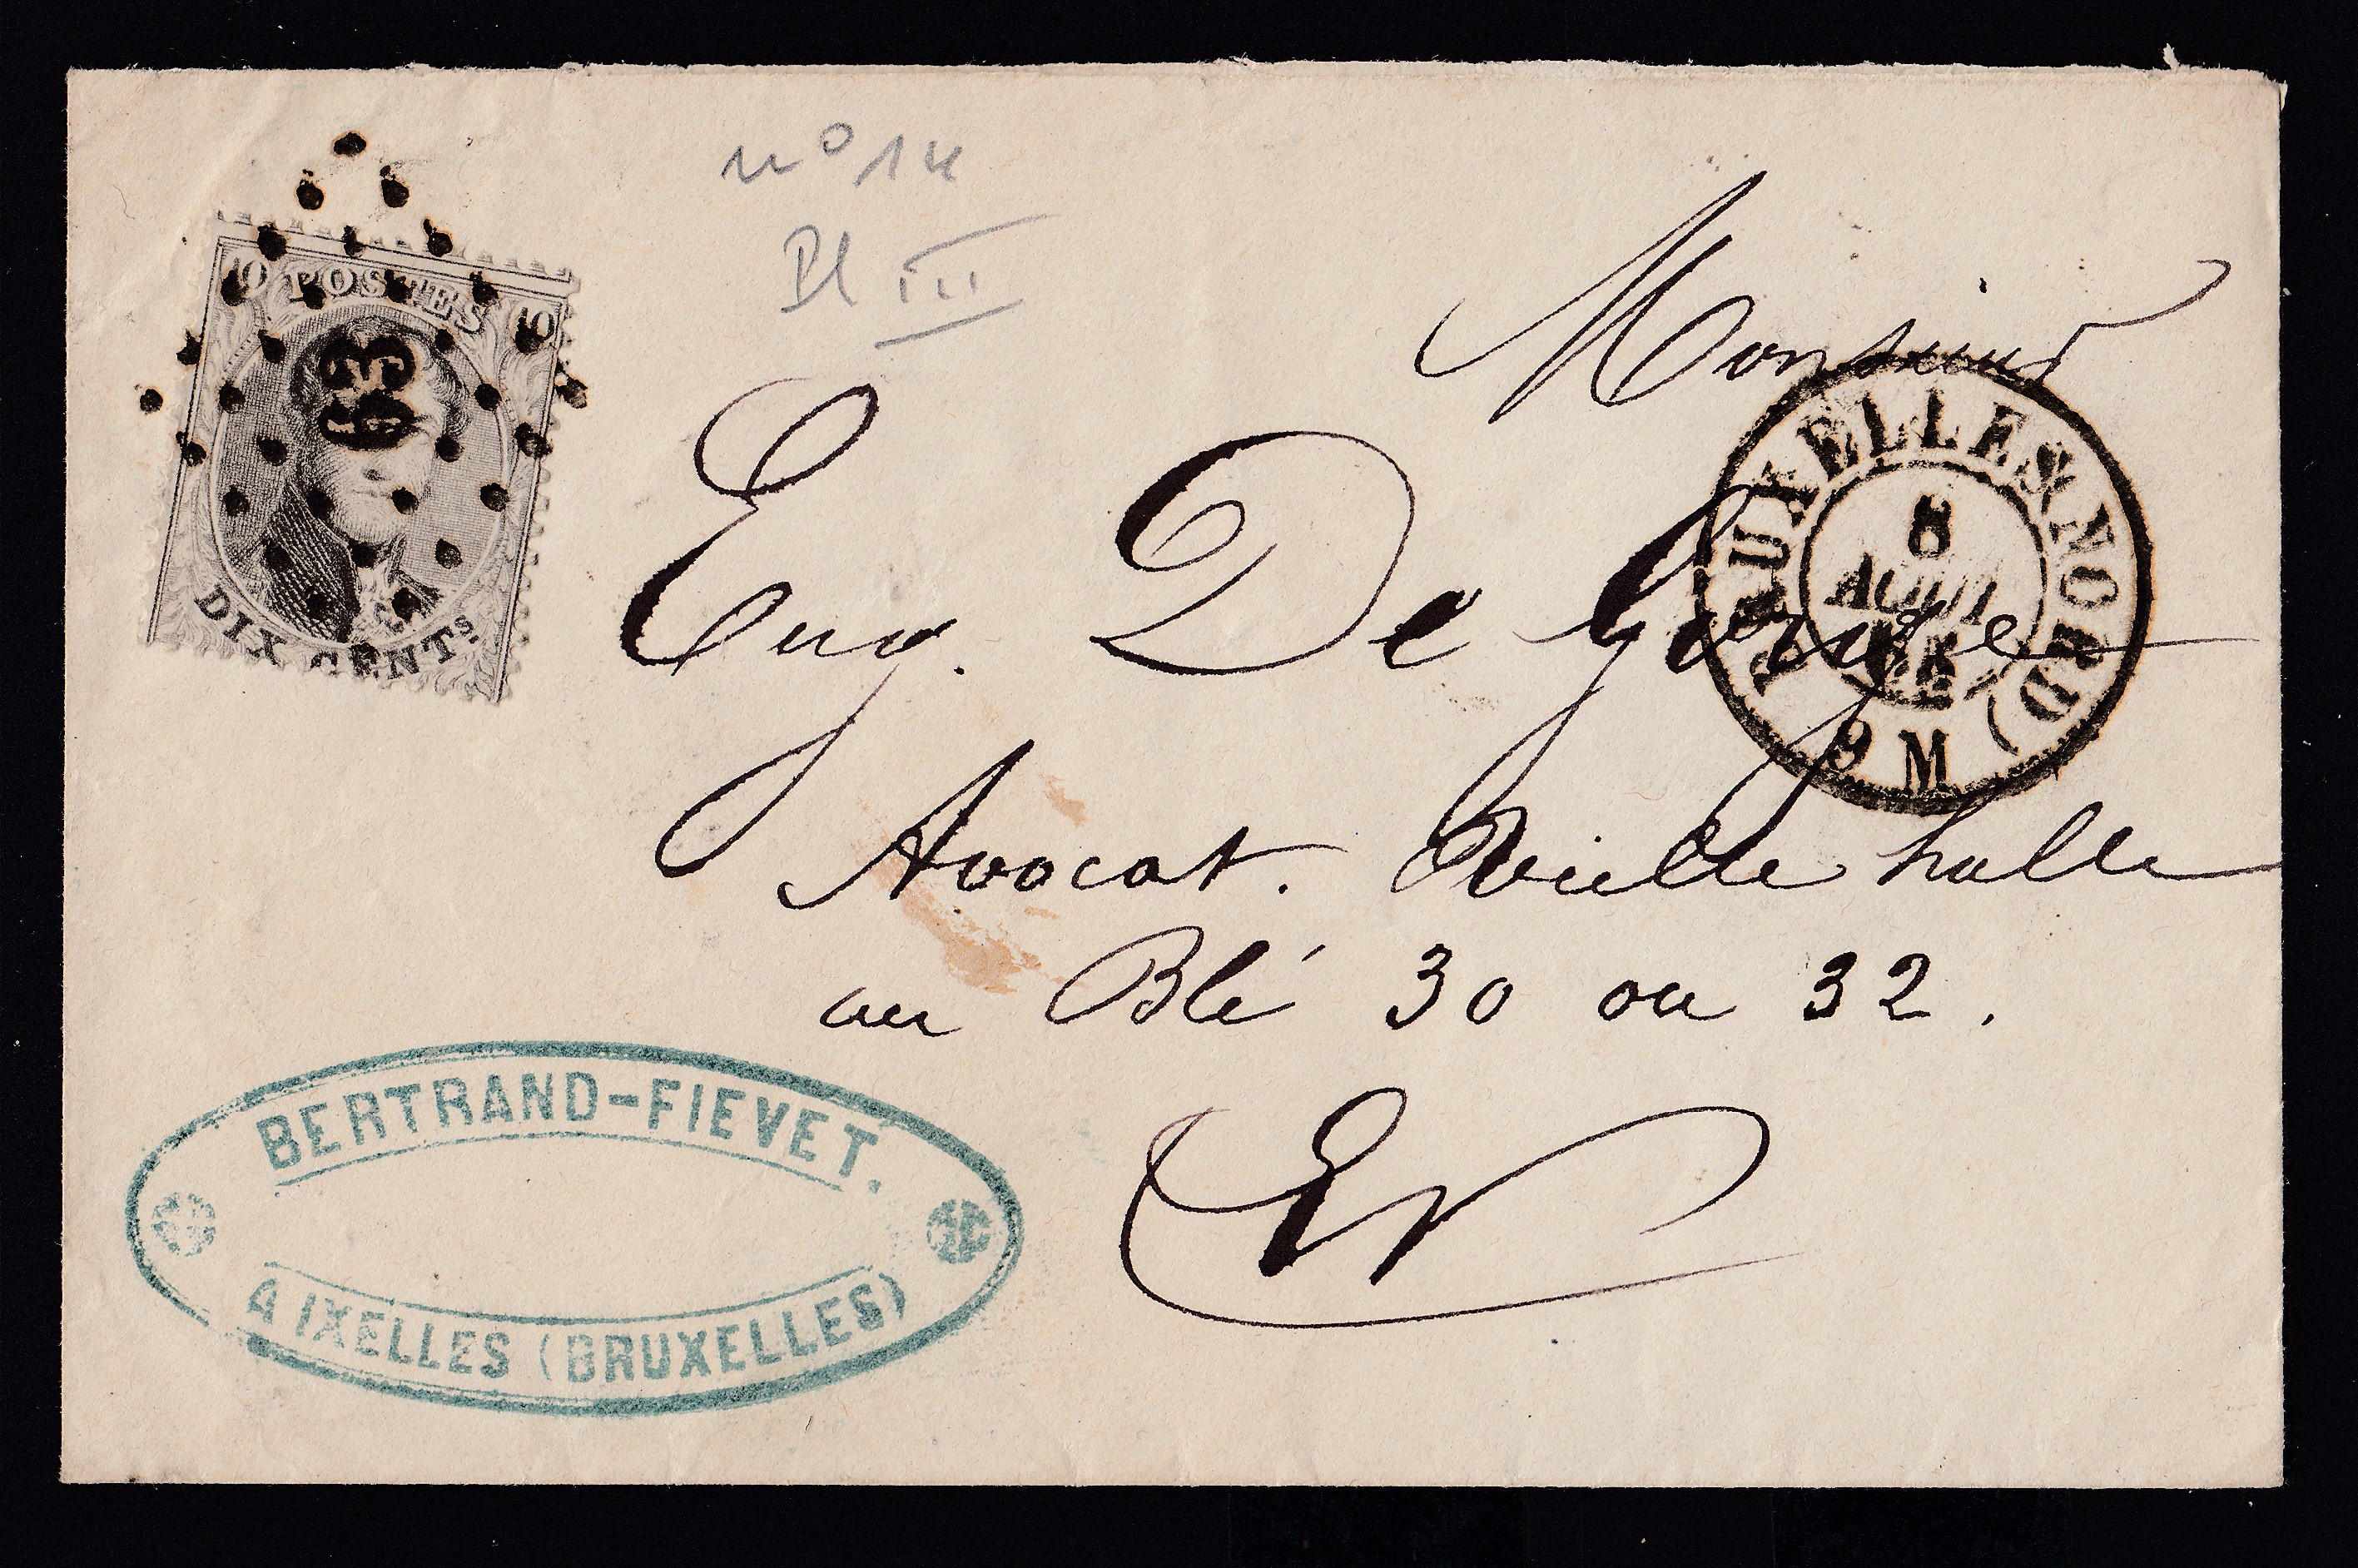 n° 14
Pl III
10 POSTES 10
63
DIX CENTS
Monsieur
BRUXELLES NORD
8
AOUT
9 M
Eug. De
Avocat. Vieille halle
au Blé 30 ou 32.
EV
BERTRAND-FIEVET.
A IXELLES (BRUXELLES)